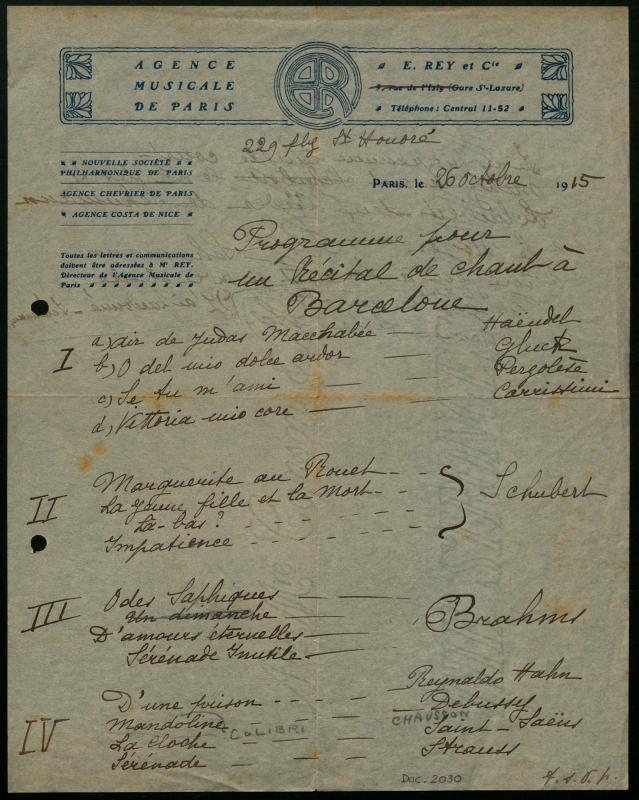 AGENCE
MUSICALE
DE PARIS
E. REY et Cie
9, rue de l'Isly (Gare St-Lazare)
Téléphone : Central 11-52
229 fbg St Honoré
NOUVELLE SOCIÉTÉ
PHILHARMONIQUE DE PARIS
AGENCE CHEVRIER DE PARIS
AGENCE COSTA DE NICE
PARIS, le 26 Octobre 1915
Toutes les lettres et communications
doivent être adressées à Mr REY,
Directeur de l'Agence Musicale de
Paris
Programme pour
un Récital de chant à
Barcelone
I
a) air de Judas Macchabée — Haëndel
b) O del mio dolce ardor — Gluck
c) Se tu m'ami — — Pergolèse
d) Vittoria mio core — Carissimi
II
Marguerite au Rouet - - -
La Jeune fille et la Mort - - -
Là-bas? - - - - -
Impatience - - - - -
Schubert
III
Odes Saphiques —
Un dimanche —
D'amours éternelles —
Sérénade Inutile —
Brahms
IV
D'une prison - - - — Reynaldo Hahn
Mandoline — — — Debussy
COLIBRI — CHAUSSON
La Cloche — — — Saint-Saëns
Sérénade — — — Strauss
Doc. 2030